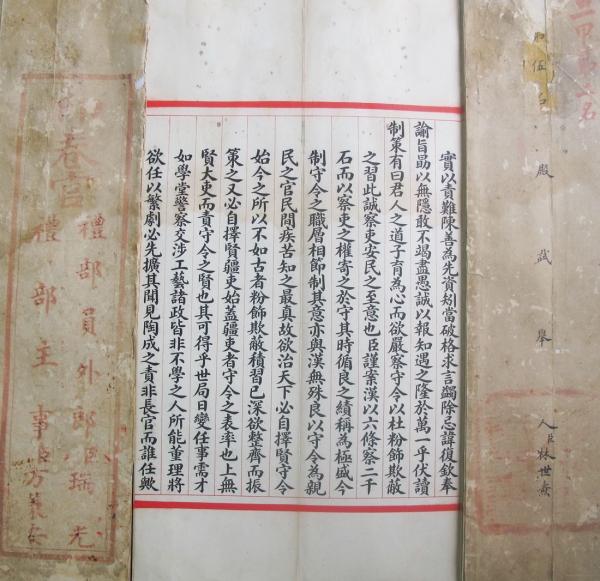 二甲
名
伍名
殿
試
舉
人臣林世燾
實以責難陳善為先資矧當破格求言蠲除忌諱復欽奉
諭旨勗以無隱敢不竭盡愚誠以報知遇之隆於萬一乎伏讀
制策有曰君人之道子育為心而欲嚴察守令以杜粉飾欺蔽
之習此誠察吏安民之至意也臣謹案漢以六條察二千
石而以察吏之權寄之於守其時循良之績稱為極盛今
制守令之職層相節制其意亦與漢無殊良以守令為親
民之官民間疾苦知之最真故欲治天下必自擇賢守令
始今之所以不如古者粉飾欺敝積習已深欲整齊而振
策之又必自擇賢疆吏始蓋疆吏者守令之表率也上無
賢大吏而責守令之賢也其可得乎世局日變任事需才
如學堂警察交涉工藝諸政皆非不學之人所能董理將
欲任以繁劇必先擴其聞見陶成之責非長官而誰任歟
印春堂
禮部員外郎臣瑞光
禮部主事臣